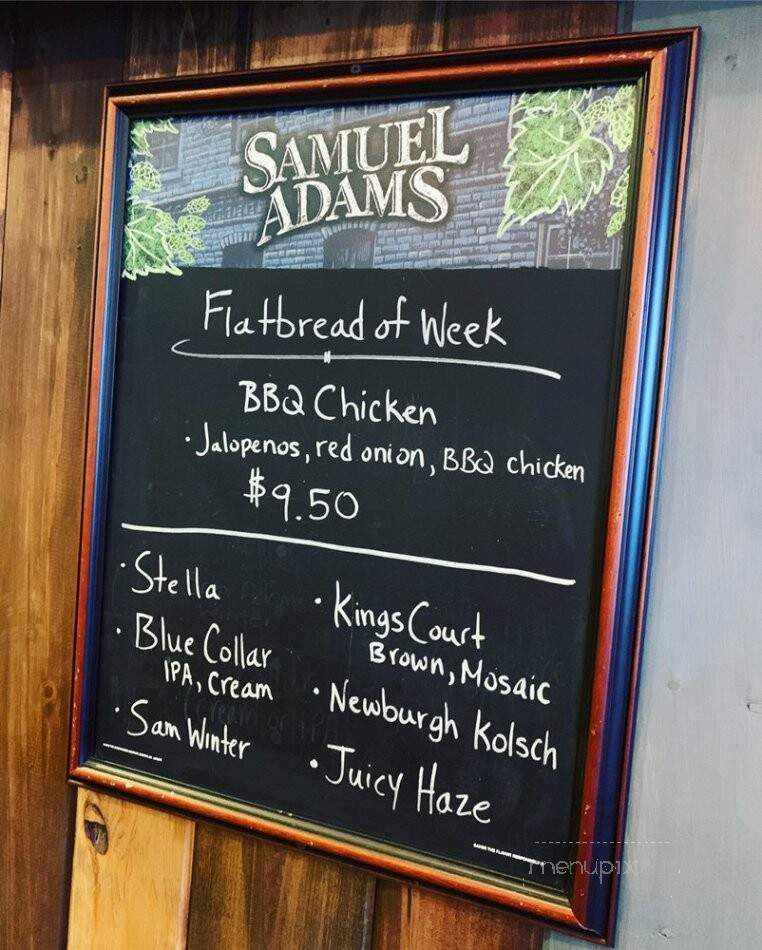 SAMUEL
ADAMS
Flatbread of Week
BBQ Chicken
· Jalopenos, red onion, BBQ chicken
$9.50
· Stella
· Blue Collar
IPA, Cream
· Sam Winter
· Kings Court
Brown, Mosaic
· Newburgh Kolsch
· Juicy Haze
menupix